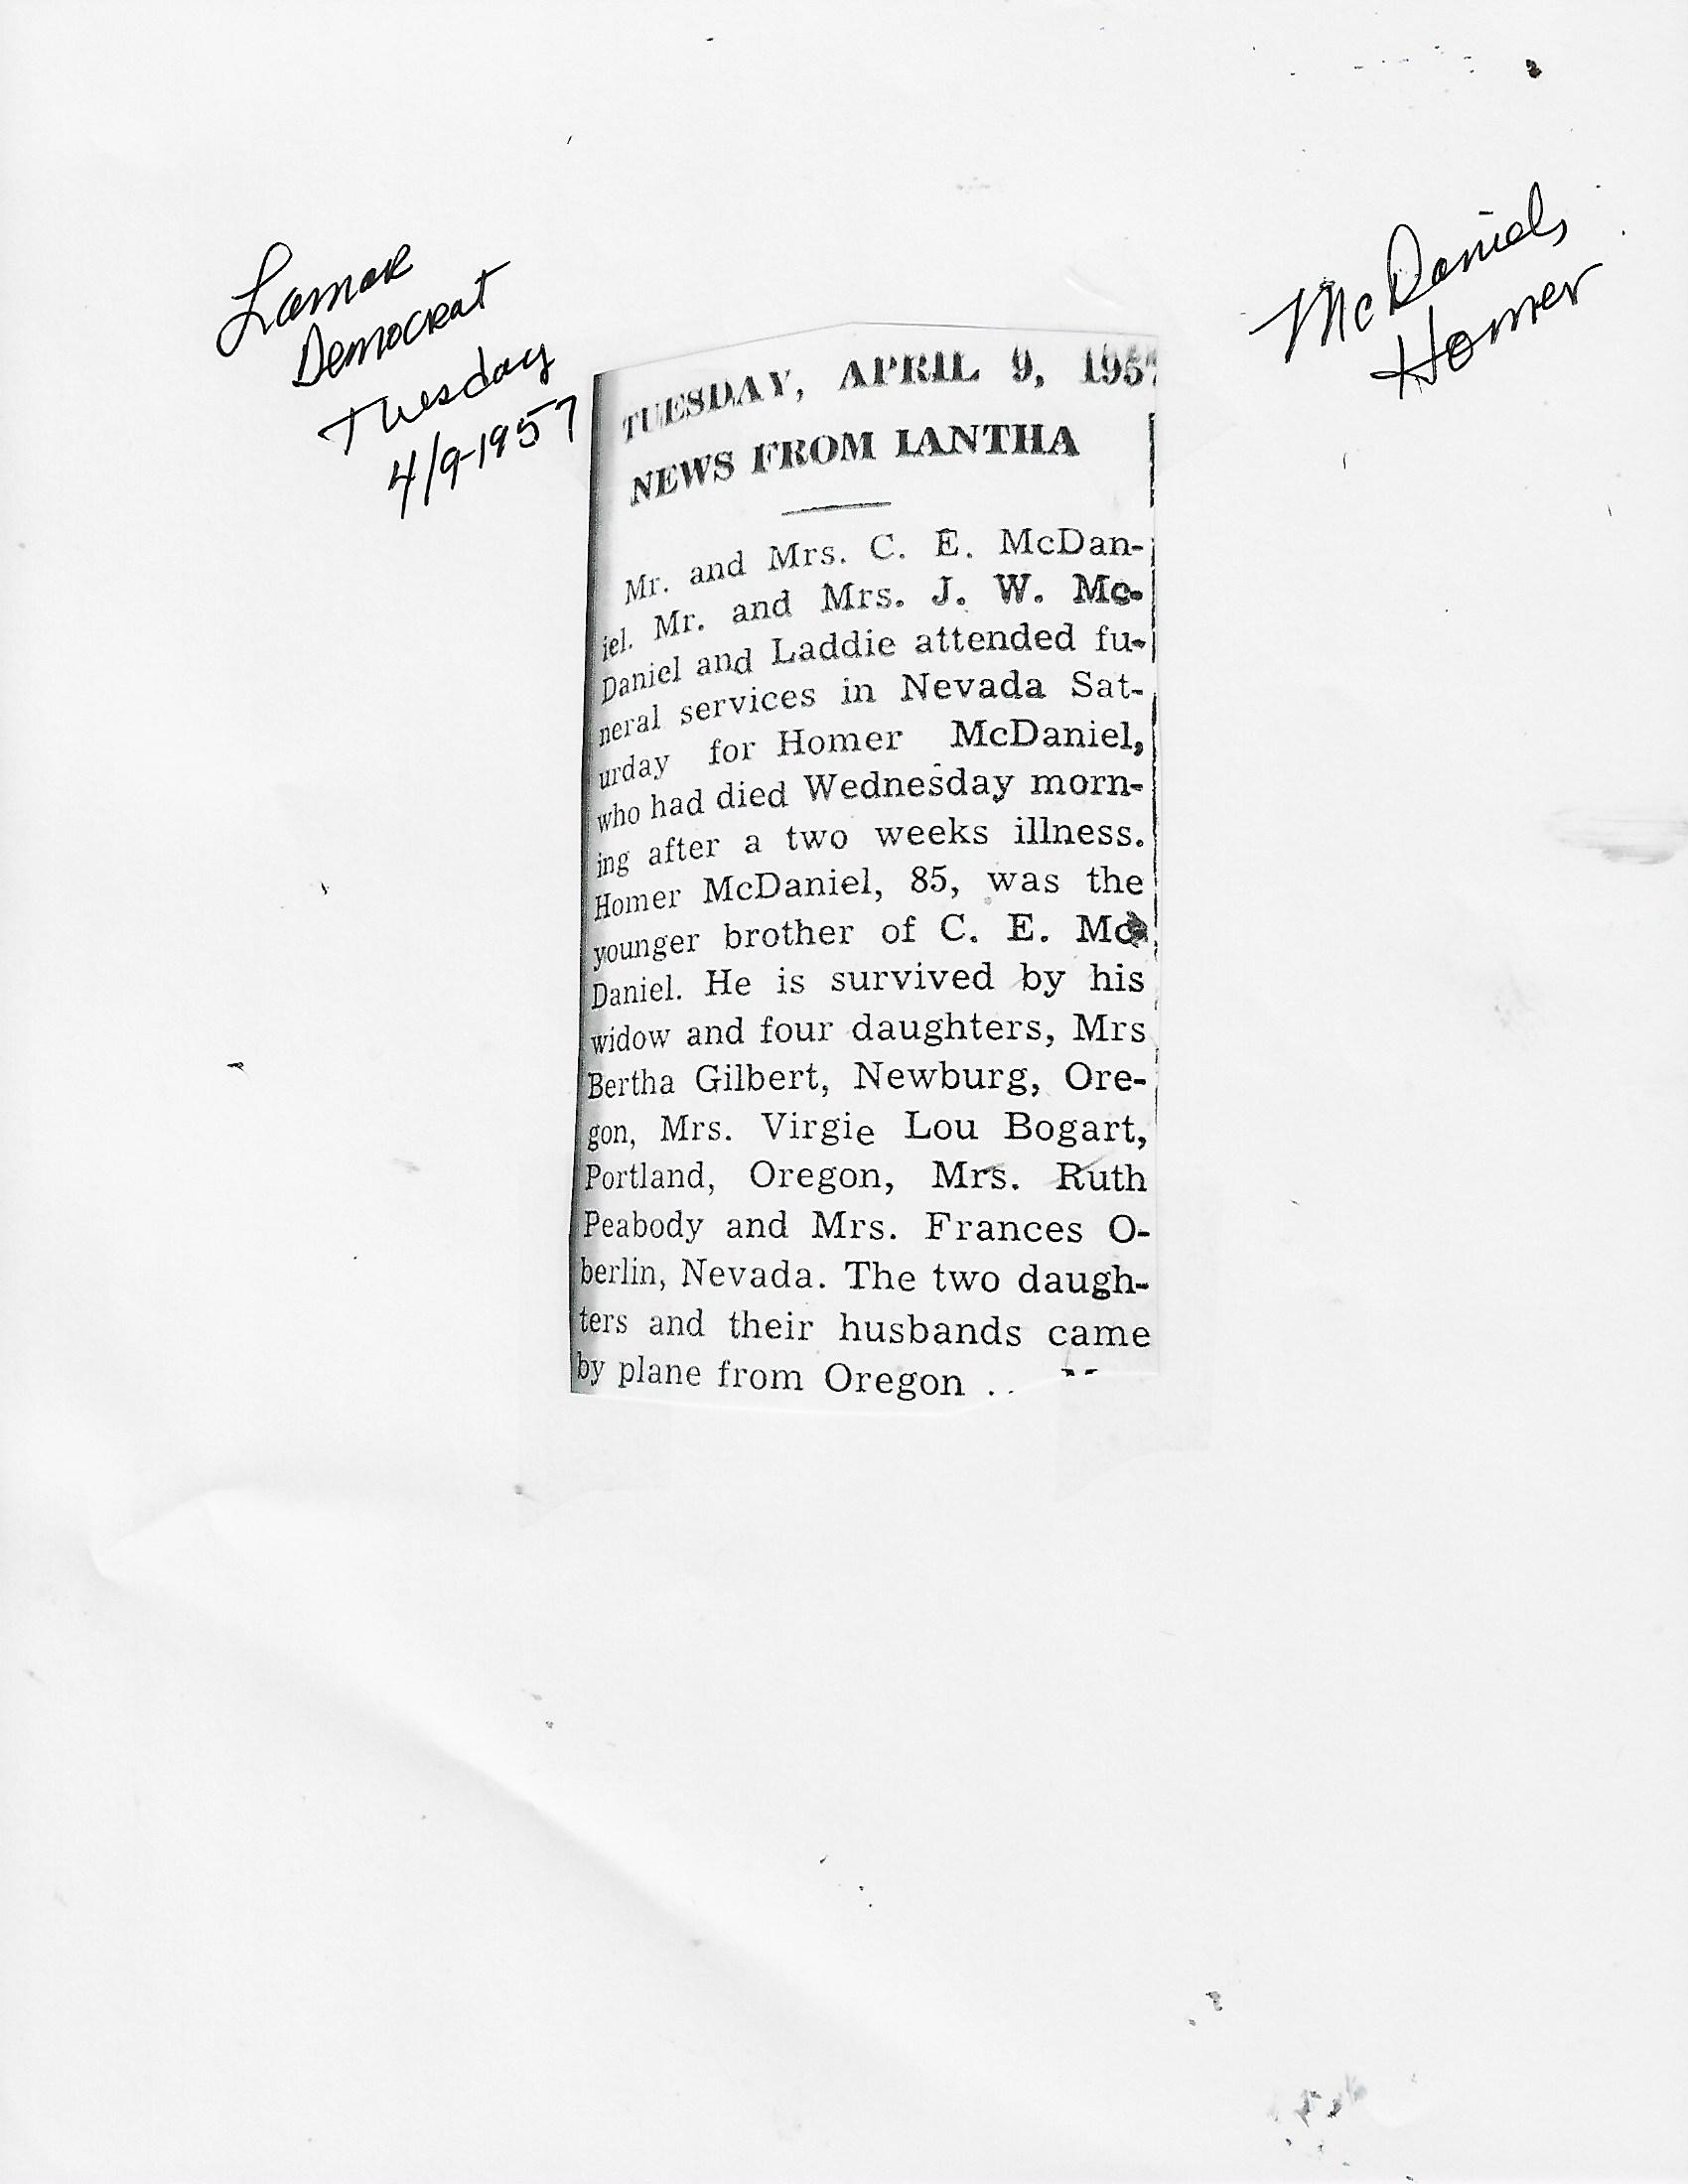 Lamar
Democrat
Tuesday
4/9-1957
McDaniels
Homer
TUESDAY, APRIL 9, 1957
NEWS FROM IANTHA
Mr. and Mrs. C. E. McDan-
iel. Mr. and Mrs. J. W. Mc-
Daniel and Laddie attended fu-
neral services in Nevada Sat-
urday for Homer McDaniel,
who had died Wednesday morn-
ing after a two weeks illness.
Homer McDaniel, 85, was the
younger brother of C. E. Mc
Daniel. He is survived by his
widow and four daughters, Mrs
Bertha Gilbert, Newburg, Ore-
gon, Mrs. Virgie Lou Bogart,
Portland, Oregon, Mrs. Ruth
Peabody and Mrs. Frances O-
berlin, Nevada. The two daugh-
ters and their husbands came
by plane from Oregon